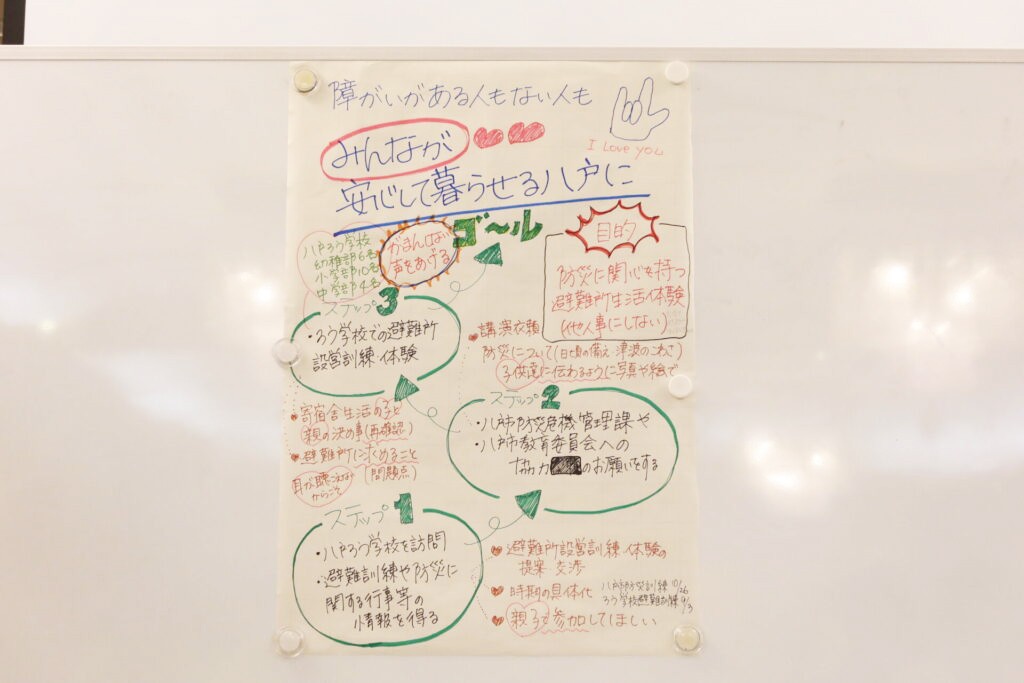 障がいがある人もない人も
I Love you
みんなが
安心して暮らせる八戸に
ゴ〜ル
がまんしない
声をあげる
八戸ろう学校
幼稚部6名
小学部10名
中学部4名
目的
防災に関心を持つ
避難所生活体験
(他人事にしない)
ステップ3
・ろう学校での避難所
設営訓練 体験
講演依頼
防災について(日頃の備え 津波のこわさ)
子供達に伝わるように写真や絵で
ステップ2
・八戸市防災危機管理課や
・八戸市教育委員会への
協力のお願いをする
寄宿舎生活の子と
親の決め事(再確認)
避難所に求めること
(問題点)
耳が聴こえない
からこそ
ステップ1
・八戸ろう学校を訪問
・避難訓練や防災に
関する行事等の
情報を得る
避難所設営訓練 体験の
提案 交渉
時期の具体化
八戸市防災訓練 10/26
ろう学校避難訓練 9/3
親子で参加してほしい